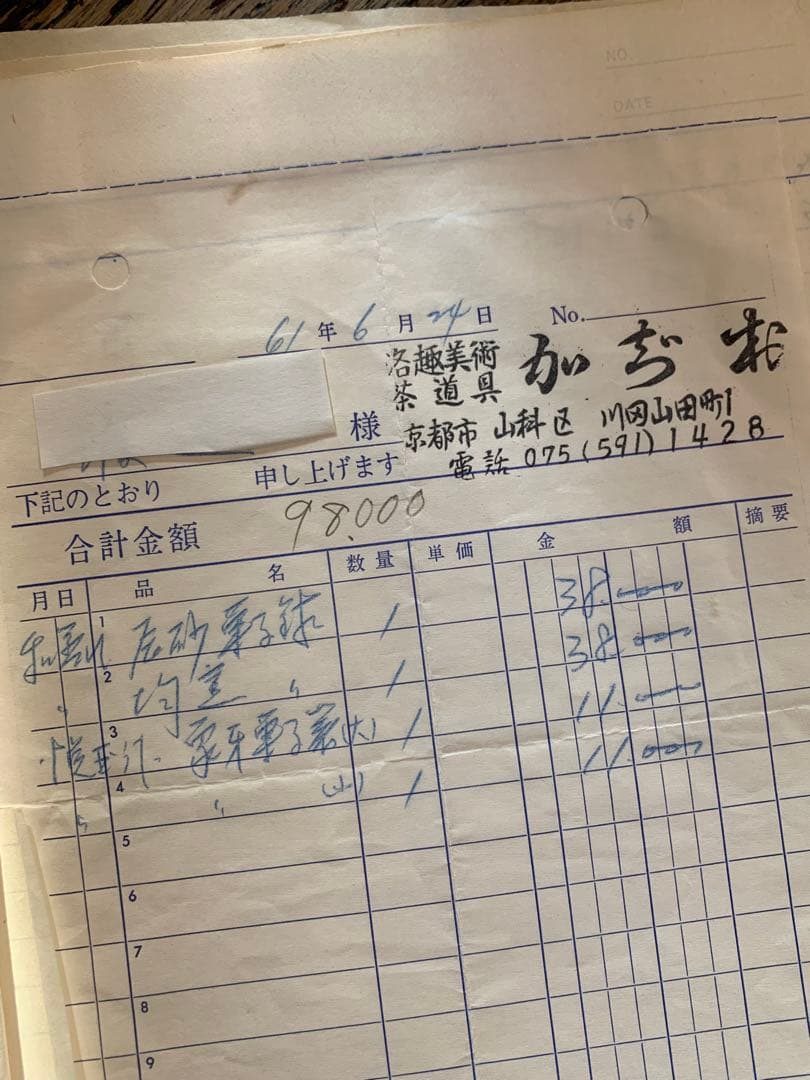 NO.
DATE
61年6月24日 No.
洛趣美術
茶道具
京都市 山科区 川田山田町1
電話 075(591)1428
様
下記のとおり 申し上げます
合計金額 98.000
月日 品名 数量 単価 金額 摘要
1 辰砂菓子鉢 1 38.000
2 均窯 〃 1 38.000
3 菓子 (大) 1 11.000
4 〃 (小) 1 11.000
5
6
7
8
9